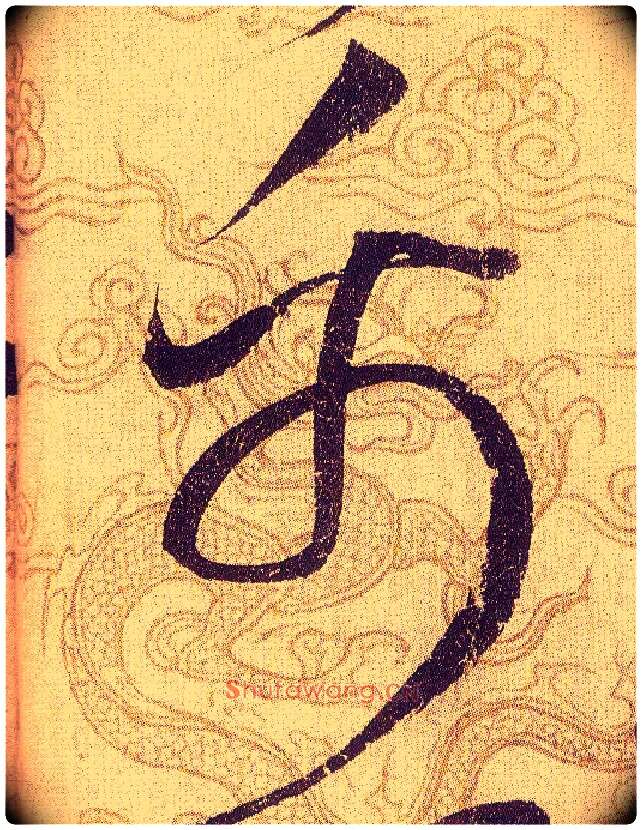 安
Shufawang.cn